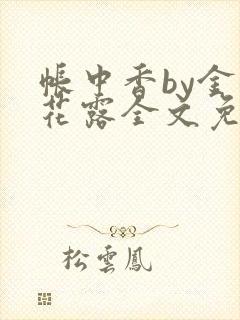 帐中香by金
花露全文免
松雲鳳